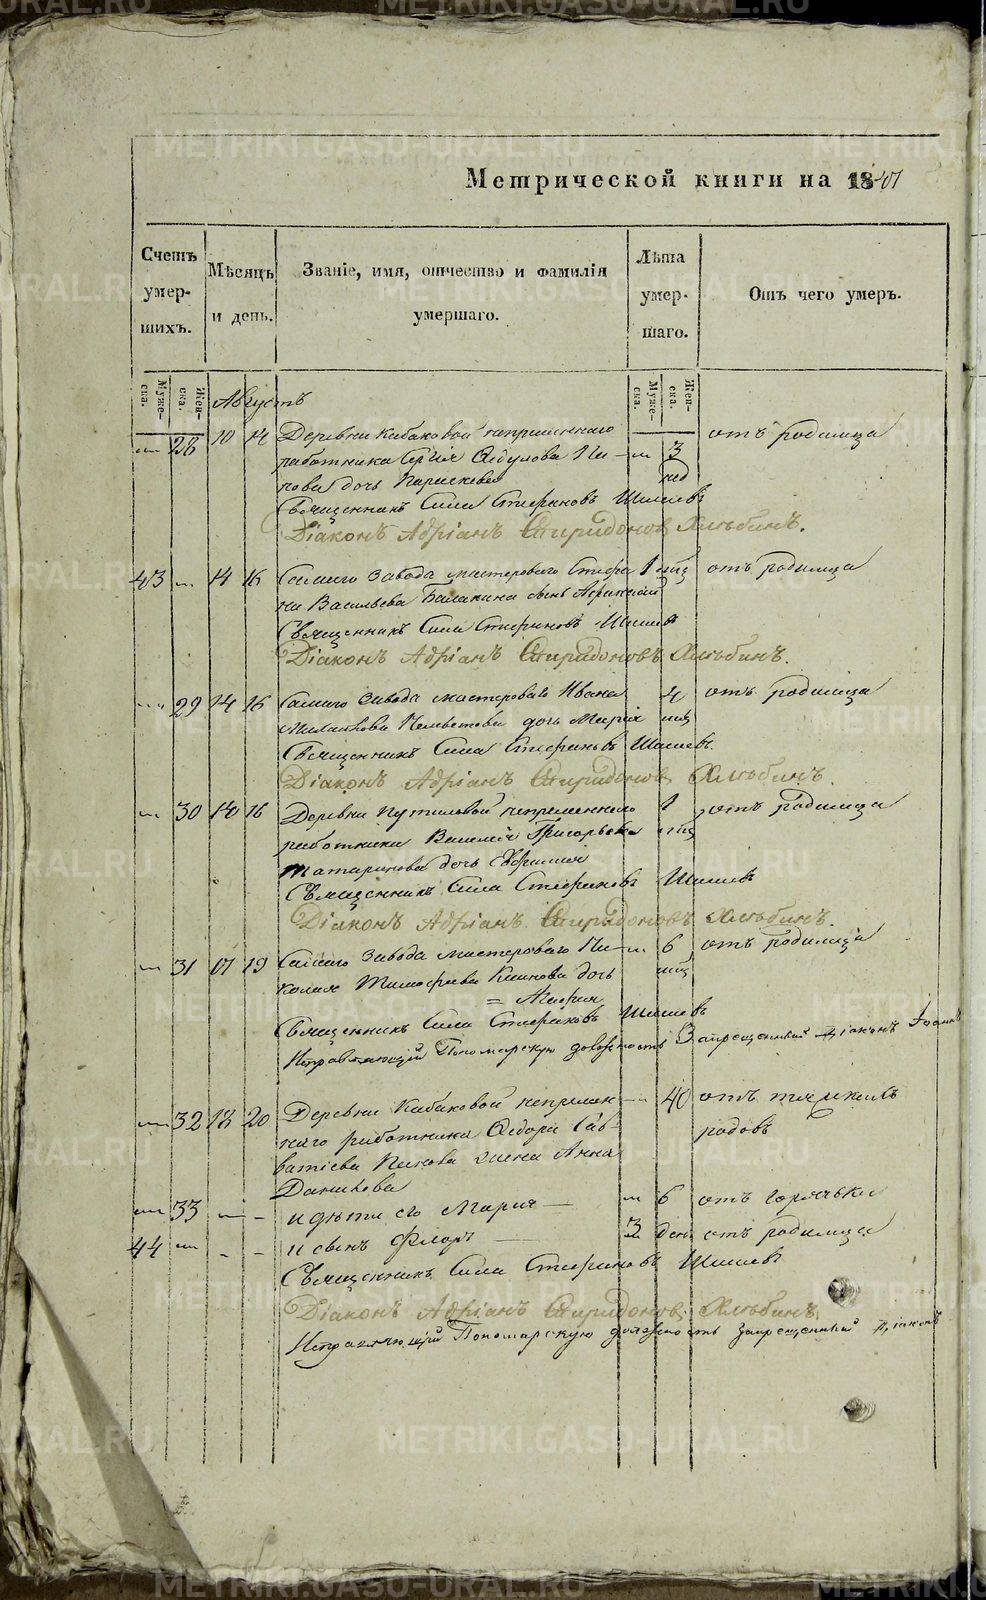 Метрической книги на 18
Счетъ умер- шихъ.
Мѣсяцъ и день.
Званіе, имя, отчество и фамилія умершаго.
Лѣта умер- шаго.
Отъ чего умеръ.
Муже- ска.
Жен- ска.
Муже- ска.
Жен- ска.
Августъ
28 14 Деревни Кабаковой непременнаго отъ родимца
работника 3
дочь Параскева нед
Священникъ Сила Стефановъ Шишевъ
Діаконъ Адріанъ Спиридоновъ Хлѣбинъ.
43 14 16 Самаго завода мастероваго Стефа 1 мсц отъ родимца
на Васильева Балакина сынъ
Священникъ Сила Стефановъ Шишевъ
Діаконъ Адріанъ Спиридоновъ Хлѣбинъ.
29 14 16 Самаго завода мастероваго Ивана 4 отъ родимца
дочь Марія мсц
Священникъ Сила Стефановъ Шишевъ.
Діаконъ Адріанъ Спиридоновъ Хлѣбинъ.
30 14 16 Деревни Путиловой непременнаго 1 отъ родимца
работника Василія Григорьева мсц
Татаринова дочь Евфимія
Священникъ Сила Стефановъ Шишевъ
Діаконъ Адріанъ Спиридоновъ Хлѣбинъ.
31 17 19 Самаго завода мастероваго Ни- 6 отъ родимца
колая Тимофеева дочь мсц
= Агафія
Священникъ Сила Стефановъ Шишевъ
Исправляющій Пономарскую должность Запрещенный Діаконъ
32 18 20 Деревни Кабаковой непремен 40 отъ тяжкихъ
наго работника Ѳедора Сав- родовъ
ватіева Пикова жена Анна
Данилова
33 и дѣти его Марія 6 отъ горячьки
44 и сынъ Флоръ 3 ден. отъ родимца
Священникъ Сила Стефановъ Шишевъ
Діаконъ Адріанъ Спиридоновъ Хлѣбинъ.
Исправляющій Пономарскую должность Запрещенный Діаконъ
METRIKI.GASO-URAL.RU